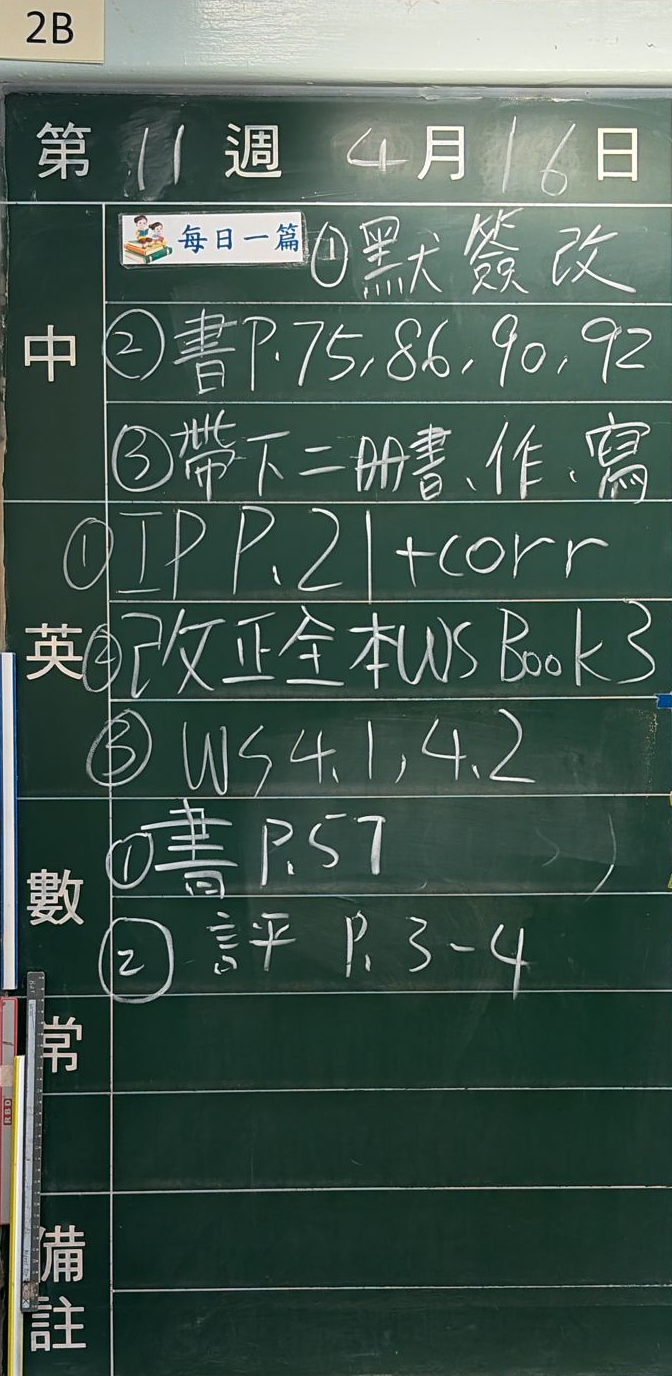 2B
第 11 週 4月16日
每日一篇 ①默簽改
中 ②書P.75,86,90,92
③帶下二冊書、作、寫
①IP P.21+corr
英 ②改正全本WS Book3
③ WS 4.1,4.2
數 ①書 P.57
② 評 P.3-4
常
備註
RBD